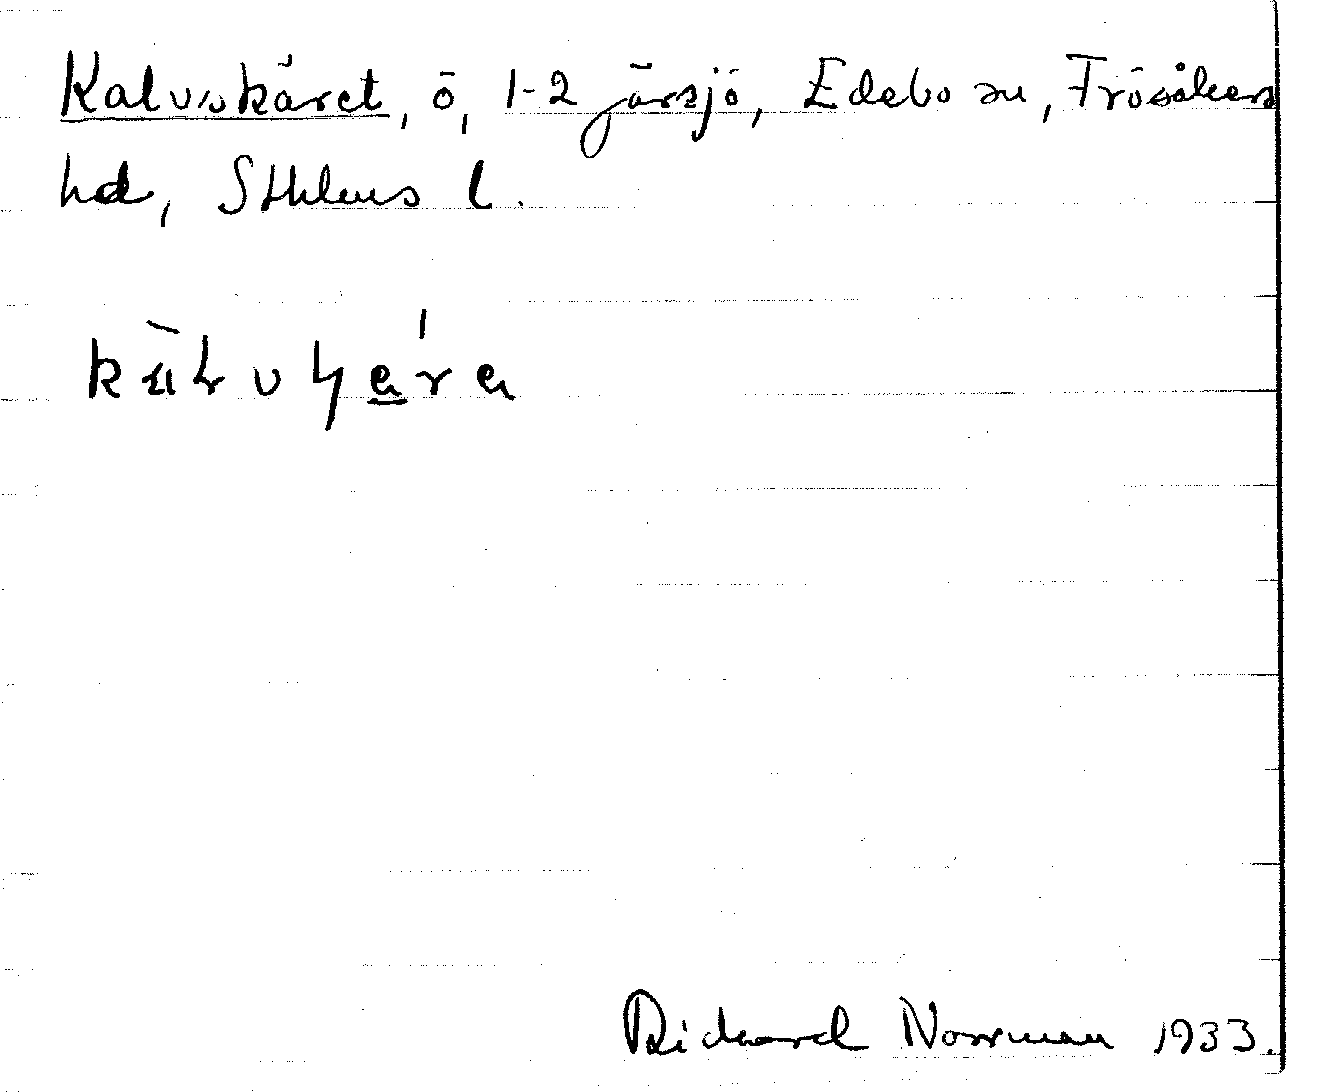 Kalvskäret, ö, 1-2 järsjö, Edebo sn, Frösåkers
hd, Sthlms l.
Rickard Norrman 1933.